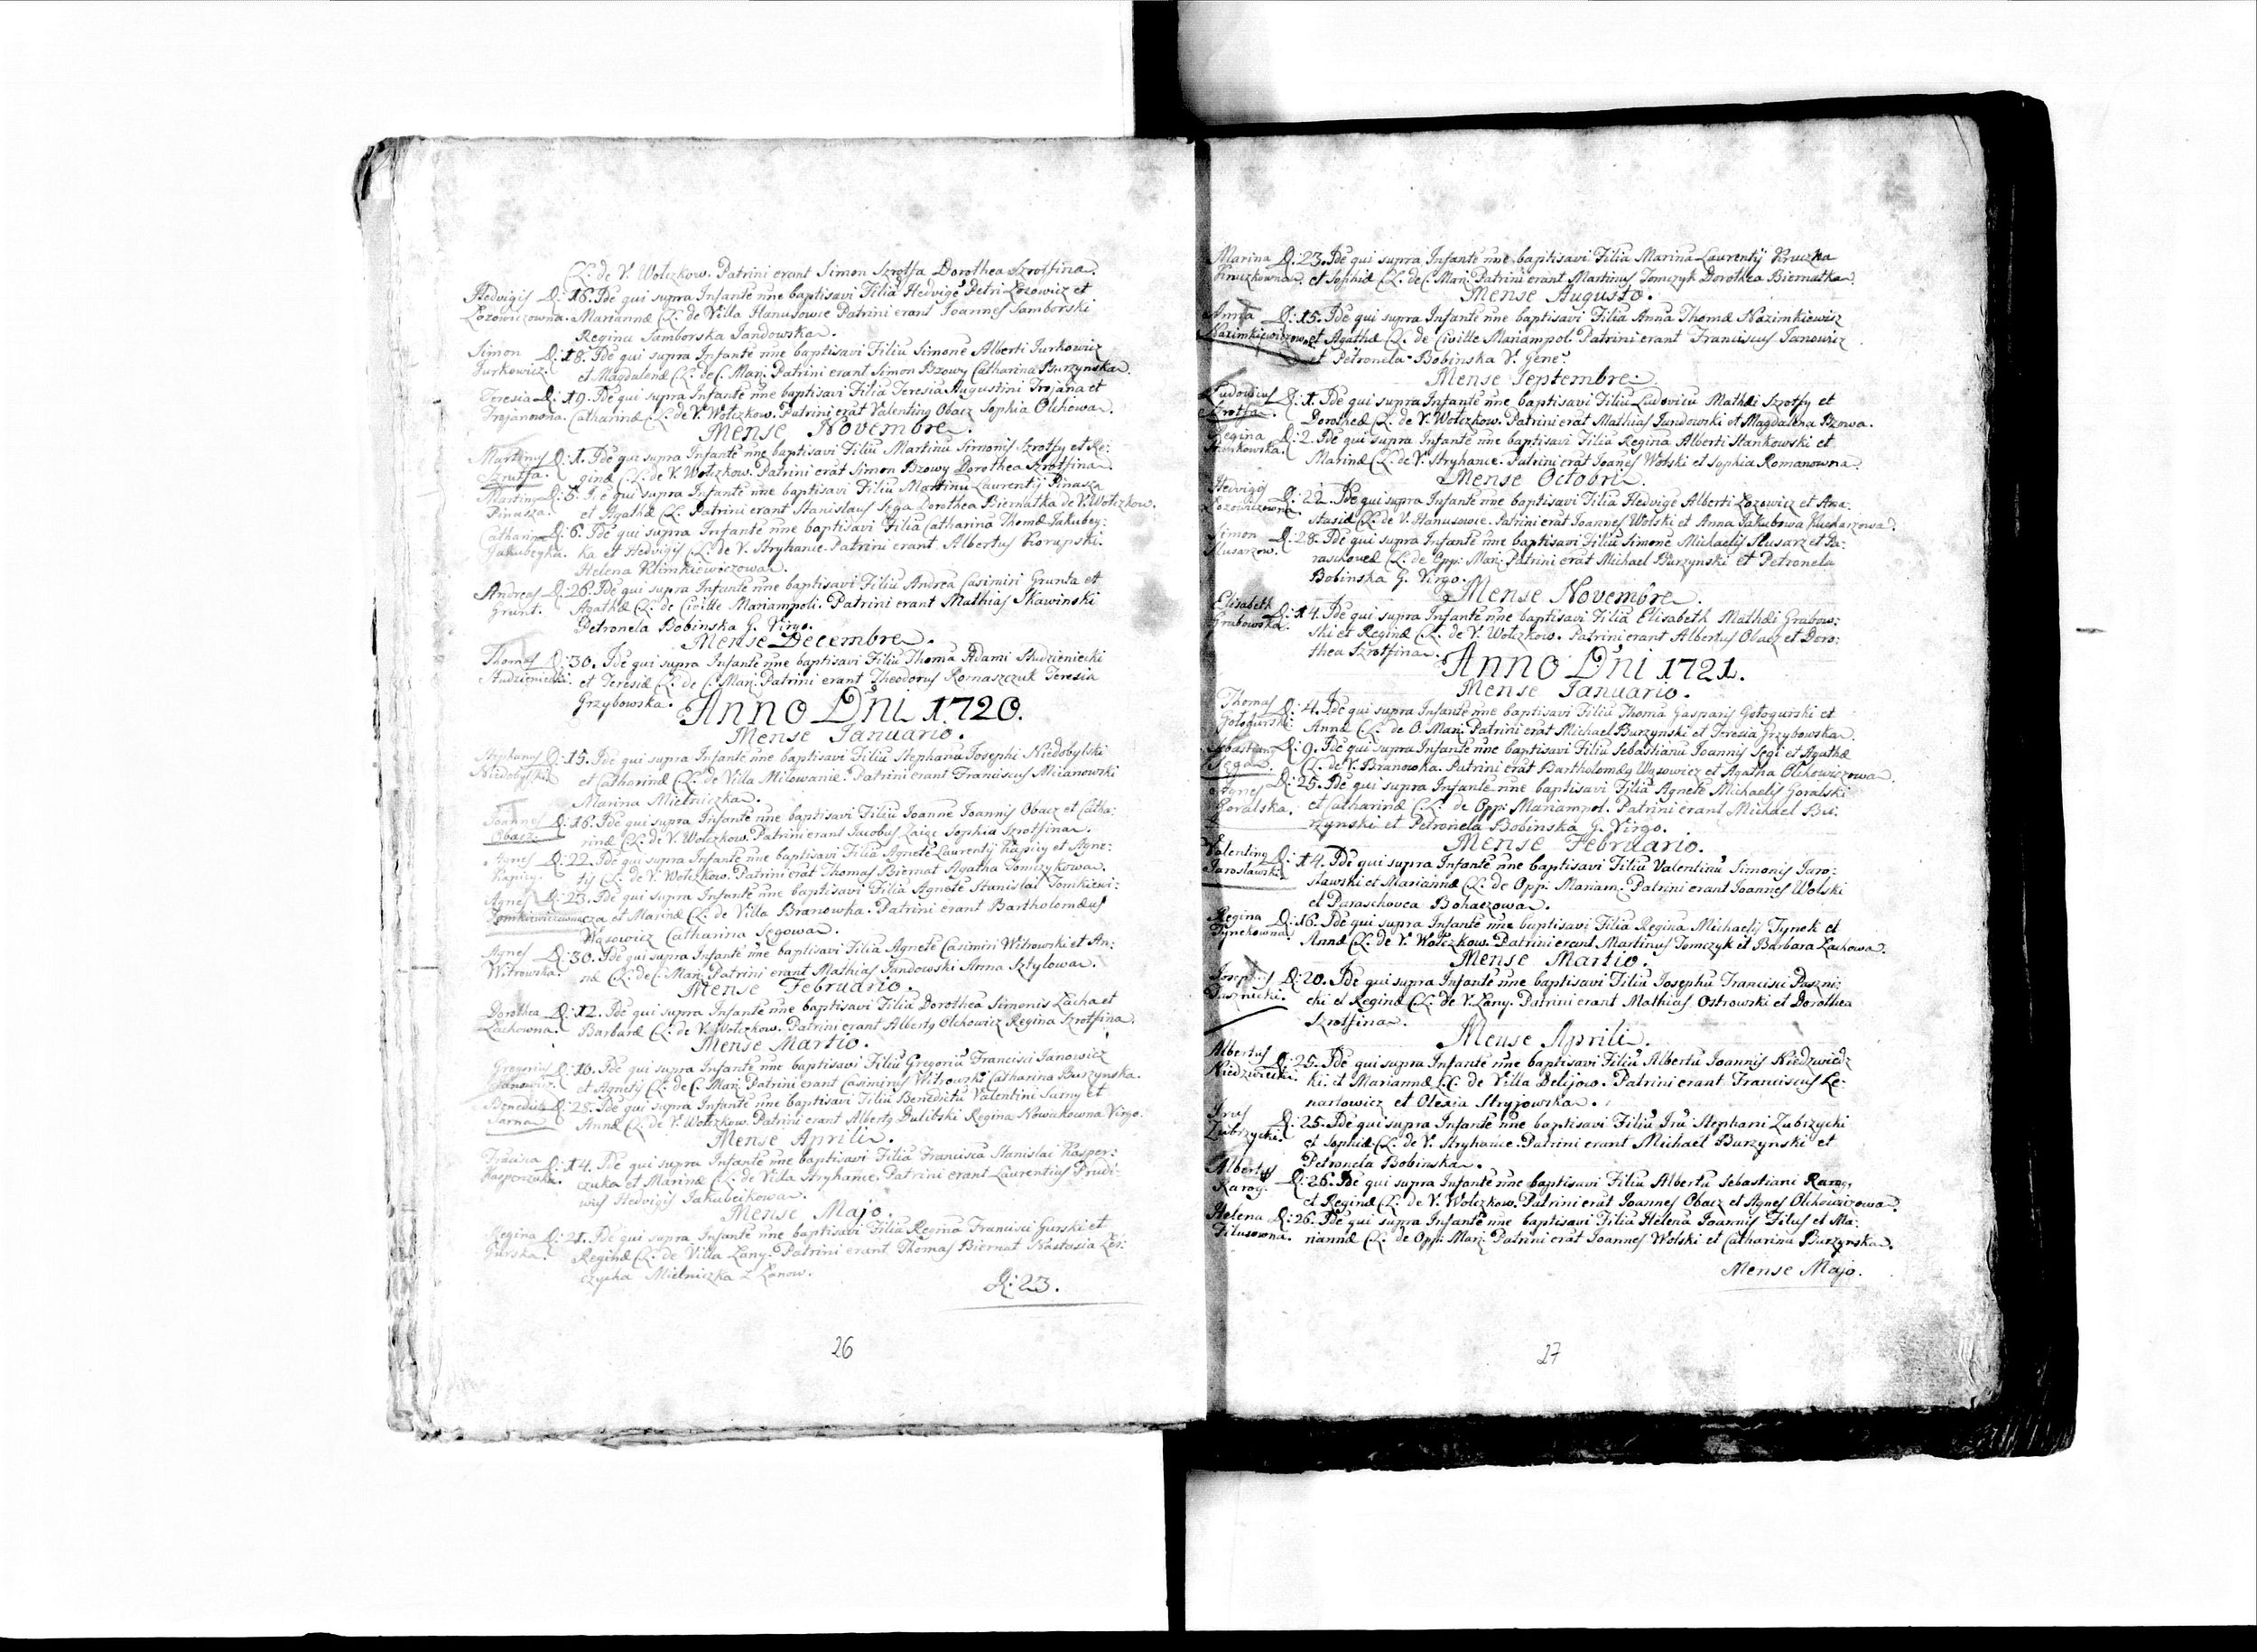 CL. de V. Wotczkow. Patrini erant Simon Szrotfa Dorothea Szrotfina.
Hedvigis D: 16. Ide qui supra Infante nne baptisavi Filia Hedvige Petri Lozowicz et
Lozowiczowna. Mariannæ CL. de Villa Hanusowce Patrini erant Joannes Samborski
Regina Samborska Jandowska.
Simon D: 18. Ide qui supra Infante nne baptisavi Filiu Simone Alberti Jurkowicz
Jurkowicz. et Magdalenæ CL. de C. Marj. Patrini erant Simon Bzowy Catharina Burzynska.
Teresia D: 19. Ide qui supra Infante nne baptisavi Filia Teresia Augustini Trojana et
Trojanowna. Catharinæ CL. de V. Wotczkow. Patrini erat Valenting Obacz Sophia Olchowa.
Mense Novembre.
Martinus D: 1. Ide qui supra Infante nne baptisavi Filiu Martinu Simonis Szrotfy et Re:
Szrutfa. ginæ CL. de V. Wotczkow. Patrini erat Simon Bzowy Dorothea Szrotfina.
Marting D: 5. I e qui supra Infante nne baptisavi Filiu Martinu Laurentij Pinasza
Pinasza. et Agathæ CL. Patrini erant Stanislaus Sega Dorothea Biernatka de V. Wotczkow.
Catharina D: 6. Ide qui supra Infante nne baptisavi Filia Catharina Thomæ Jakubey:
Jakubeyka. ka et Hedvigis CL. de V. Stryhance. Patrini erant. Albertus Korupski.
Helena Klimkiewiczowa.
Andreas D: 26. Ide qui supra Infante nne baptisavi Filiu Andrea Casimiri Grunta et
Grunt. Agathæ CL. de Civitte Mariampoli. Patrini erant Mathias Skawinski
Petronela Bobinska G. Virgo.
Mense Decembre.
Thomas D: 30. Ide qui supra Infante nne baptisavi Filiu Thoma Adami Studzieniecki
Studzieniecki. et Teresiæ CL. de C. Marj. Patrini erant Theodorus Romaszczuk Teresia
Grzybowska.
Anno Dni 1720.
Mense Januario.
Stephanus D: 15. Ide qui supra Infante nne baptisavi Filiu Stephanu Josephi Niedobylski
et Catharinæ CL. de Villa Milowanie. Patrini erant Franciscus Mianowski
Marina Mielniczka.
Joannes D: 16. Ide qui supra Infante nne baptisavi Filiu Joanne Joannis Obacz et Catha:
Obacz. rinæ CL. de V. Wotczkow. Patrini erant Jacobus Zaiąc Sophia Szrotfina.
Agnes D: 22. Ide qui supra Infante nne baptisavi Filia Agnete Laurentij Kapicy et Agne:
Kapicy. tis CL. de V. Wotczkow. Patrini erat Thomas Biernat Agatha Tomczykowa.
Agnes D: 23. Ide qui supra Infante nne baptisavi Filia Agnete Stanislai Tomkiewi:
Tomkiewiczowna cza et Marinæ CL. de Villa Branowka. Patrini erant Bartholomæus
Wąsowicz Catharina Segowa.
Agnes D: 30. Ide qui supra Infante nne baptisavi Filia Agnete Casimiri Witrowski et An:
Witrowska. næ CL. de C. Marj. Patrini erant Mathias Jandowski Anna Sztylowa.
Mense Februario.
Dorothea D: 12. Ide qui supra Infante nne baptisavi Filia Dorothea Simonis Lacha et
Lachowna. Barbaræ CL. de V. Wotczkow. Patrini erant Albertg Olchowicz Regina Szrotfina.
Mense Martio.
Gregorius D: 10. Ide qui supra Infante nne baptisavi Filiu Gregoriu Francisci Janowicz
Janowicz. et Agnetis CL. de C. Marj. Patrini erant Casimirus Witrowski Catharina Burzynska.
Benedictg D: 25. Ide qui supra Infante nne baptisavi Filiu Benedictu Valentini Sarny et
Sarna. Annæ CL. de V. Wotczkow. Patrini erant Albertg Dulibski Regina Nowakowna Virgo.
Mense Aprili.
D: 14. Ide qui supra Infante nne baptisavi Filia Francisca Stanislai Kasper:
czuka et Marinæ CL. de Villa Stryhance. Patrini erant Laurentius Prudi:
wus Hedvigis Jakubeikowa.
Mense Majo.
Regina D: 21. Ide qui supra Infante nne baptisavi Filia Regina Francisci Gurski et
Gurska. Reginæ CL. de Villa Lany. Patrini erant Thomas Biernat Nastasia
Mielniczka z Lanow.
D: 23.
26
Marina D: 23. Ide qui supra Infante nne baptisavi Filia Marina Laurentij Kruczka
Kruczkowna. et Sophiæ CL. de C. Marj. Patrini erant Martinus Tomczyk Dorothea Biernatka.
Mense Augusto.
Anna D: 15. Ide qui supra Infante nne baptisavi Filia Anna Thomæ Nazimkiewicz
et Agathæ CL. de Civitte Mariampol. Patrini erant Franciscus Janowicz
et Petronela Bobinska V. Gene.
Mense Septembre.
Ludovicus D: 1. Ide qui supra Infante nne baptisavi Filiu Ludovicu Mathæi Szrotfy et
Szrotfa. Dorotheæ CL. de V. Wotczkow. Patrini erat Mathias Jandowski et Magdalena Bzowa.
Regina D: 2. Ide qui supra Infante nne baptisavi Filia Regina Alberti Stankowski et
Stankowska. Marinæ CL. de V. Stryhance. Patrini erat Joanes Wolski et Sophia Romanowna.
Mense Octobri.
Hedvigis D: 22. Ide qui supra Infante nne baptisavi Filia Hedvige Alberti Lozowicz et Ana:
Lozowiczowna. stasiæ CL. de V. Hanusowce. Patrini erat Joannes Wolski et Anna Jakubowa Kucharzowa.
Simon D: 28. Ide qui supra Infante nne baptisavi Filiu Simone Michaelis Slusarz et Pa:
Slusarzow. raschoveæ CL. de Opp: Marj. Patrini erat Michael Burzynski et Petronela
Bobinska G. Virgo.
Mense Novembre.
Elisabeth D: 14. Ide qui supra Infante nne baptisavi Filia Elisabeth Mathæi Grabow:
Grabowska. ski et Reginæ CL. de V. Wotczkow. Patrini erant Albertus Obacz et Doro:
thea Szrotfina.
Anno Dni 1721.
Mense Januario.
Thomas D: 4. Ide qui supra Infante nne baptisavi Filiu Thoma Gasparis Gołogurski et
Gołogurski Annæ CL. de O. Marj. Patrini erat Michael Burzynski et Teresia Grzybowska.
Sebastiang D: 9. Ide qui supra Infante nne baptisavi Filiu Sebastianu Joannis Segi et Agathæ
Sega. CL. de V. Branowka. Patrini erat Bartholomæg Wąsowicz et Agatha Olchowiczowa.
Agnes D: 25. Ide qui supra Infante nne baptisavi Filia Agnete Michaelis Goralski
Goralska. et Catharinæ CL. de Opp: Mariampol. Patrini erant Michael Bu:
rzynski et Petronela Bobinska G. Virgo.
Mense Februario.
Valenting D: 14. Ide qui supra Infante nne baptisavi Filiu Valentinu Simonis Jaro:
Jarosławski sławski et Mariannæ CL. de Opp: Mariam. Patrini erant Joannes Wolski
et Paraschovea Bohaczowa.
Regina D: 16. Ide qui supra Infante nne baptisavi Filia Regina Michaelis Tynek et
Tynekowna. Annæ CL. de V. Wotczkow. Patrini erant Martinus Tomczyk et Barbara Lachowa.
Mense Martio.
Josephus D: 20. Ide qui supra Infante nne baptisavi Filiu Josephu Francisci Paszni:
cki et Reginæ CL. de V. Lany. Patrini erant Mathias Ostrowski et Dorothea
Szrotfina.
Mense Aprili.
Albertus D: 25. Ide qui supra Infante nne baptisavi Filiu Albertu Joannis Niedzwiedz
Niedzwiecki. ki. et Mariannæ LC. de Villa Delijow. Patrini erant Franciscus Le:
nartowicz et Olexia Stryjowska.
Irus D: 25. Ide qui supra Infante nne baptisavi Filiu Iru Stephani Zubrzycki
Zubrzycki. et Sophiæ CL. de V. Stryhance. Patrini erant Michael Burzynski et
Petronela Bobinska.
Albertus D: 26. Ide qui supra Infante nne baptisavi Filiu Albertu Sebastiani Karog,
Karog. et Reginæ CL. de V. Wotczkow. Patrini erat Joannes Obacz et Agnes Olchowiczowa.
Helena D: 26. Ide qui supra Infante nne baptisavi Filia Helena Joannis Filus et Ma:
Filusowna. riannæ CL. de Opp: Marj. Patrini erat Joannes Wolski et Catharina Burzynska.
Mense Majo.
27